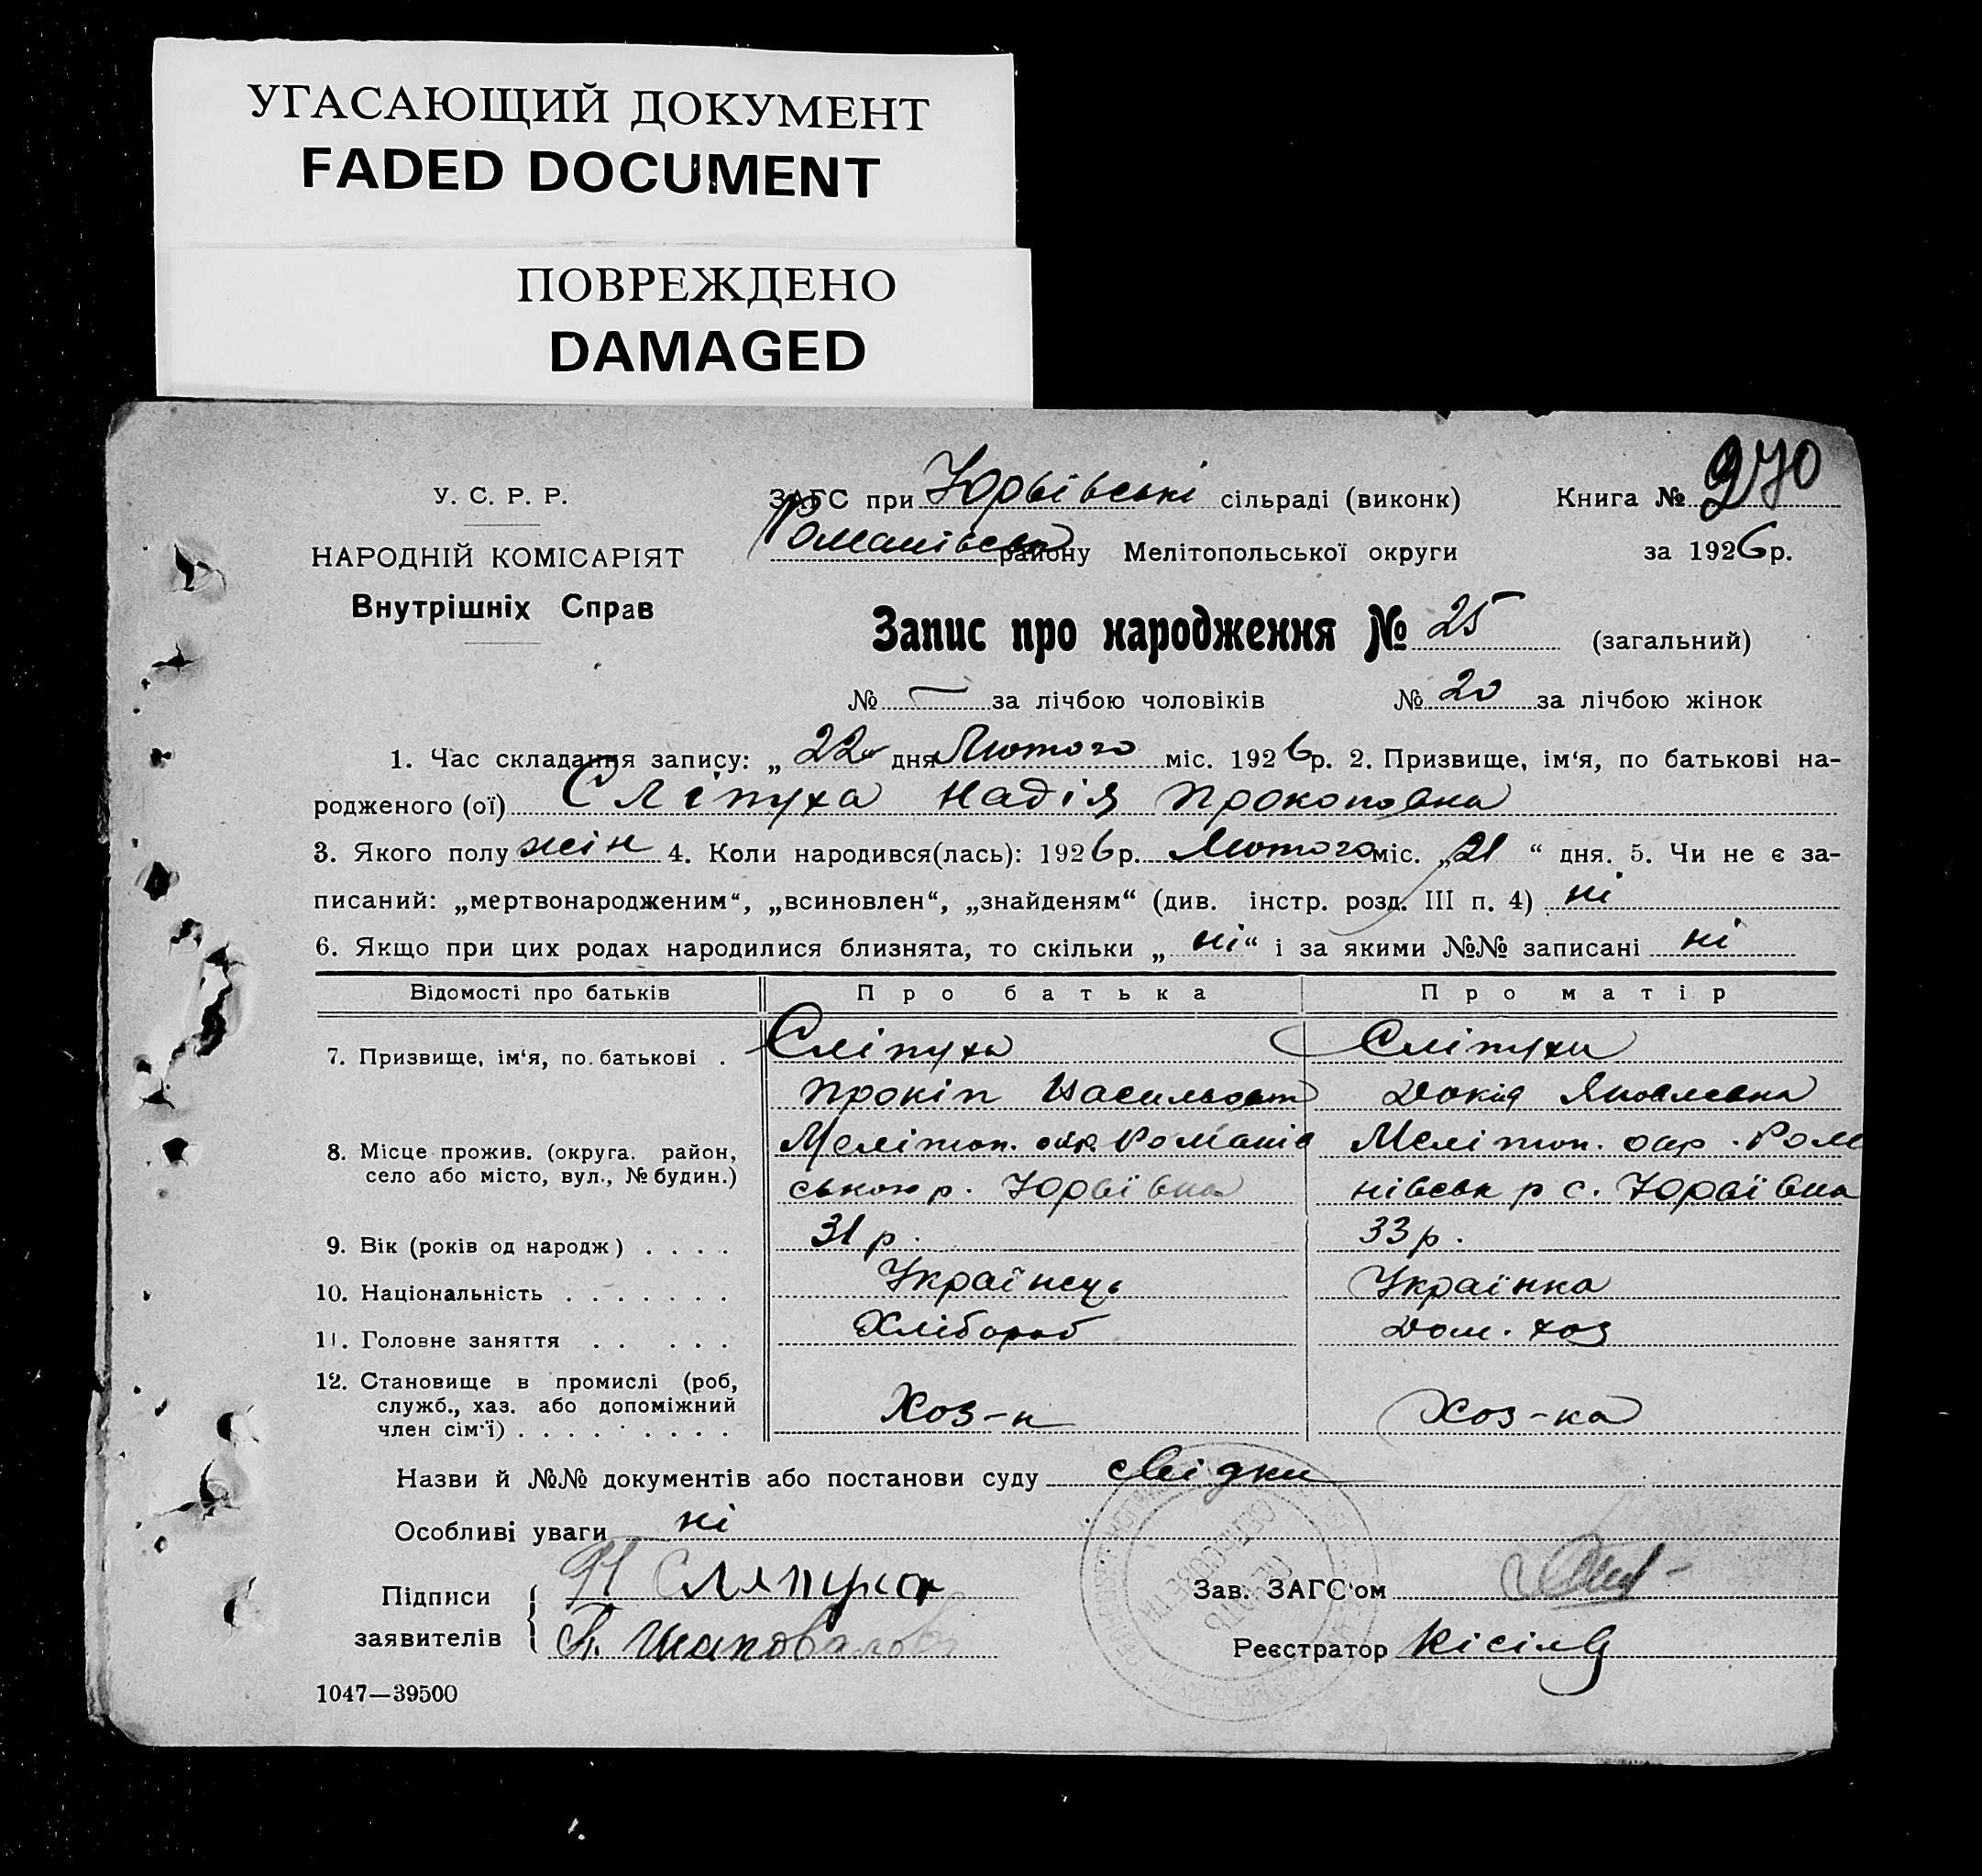 УГАСАЮЩИЙ ДОКУМЕНТ
FADED DOCUMENT
ПОВРЕЖДЕНО
DAMAGED
У. С. Р. Р.
НАРОДНІЙ КОМІСАРІЯТ
Внутрішніх Справ
ЗАГС при Юрьївські сільраді (виконк) Книга № 270
району Мелітопольської округи за 1926 р.
Запис про народження № 25 (загальний)
№ — за лічбою чоловіків № 20 за лічбою жінок
1. Час складання запису: „ 22 дня Лютого міс. 1926 р. 2. Призвище, ім‘я, по батькові на-
родженого (ої) Сліпуха Надія Прокоповна
3. Якого полу жін 4. Коли народився(лась): 1926 р. Лютого міс. „21 “ дня. 5. Чи не є за-
писаний: „мертвонародженим“, „всиновлен“, „знайденям“ (див. інстр. розд. III п. 4) ні
6. Якщо при цих родах народилися близнята, то скільки „ ні“ і за якими №№ записані ні
Відомості про батьків Про батька Про матір
7. Призвище, ім‘я, по батькові . Сліпуха Сліпуха
Прокіп Васильовт Докія Яковлевна
8. Місце прожив. (округа. район, Меліт оп. окр. Романів Мелітоп. окр. Ром
село або місто, вул., № будин.) ського р. Юрьївка нівськ р с. Юрьївка
9. Вік (років од народж) . . . . 31 р. 33 р.
10. Національність . . . . . . . Українець Українка
11. Головне заняття . . . . . Хлібороб Дом. хоз
12. Становище в промислі (роб,
служб., хаз. або допоміжний Хоз-н Хоз-ка
член сім‘ї) . . . . . . . . .
Назви й №№ документів або постанови суду свідки
Особливі уваги ні
Підписи П Сляпуха Зав. ЗАГС‘ом
заявителів П. Шаповалов Реєстратор Кісіль
1047—39500